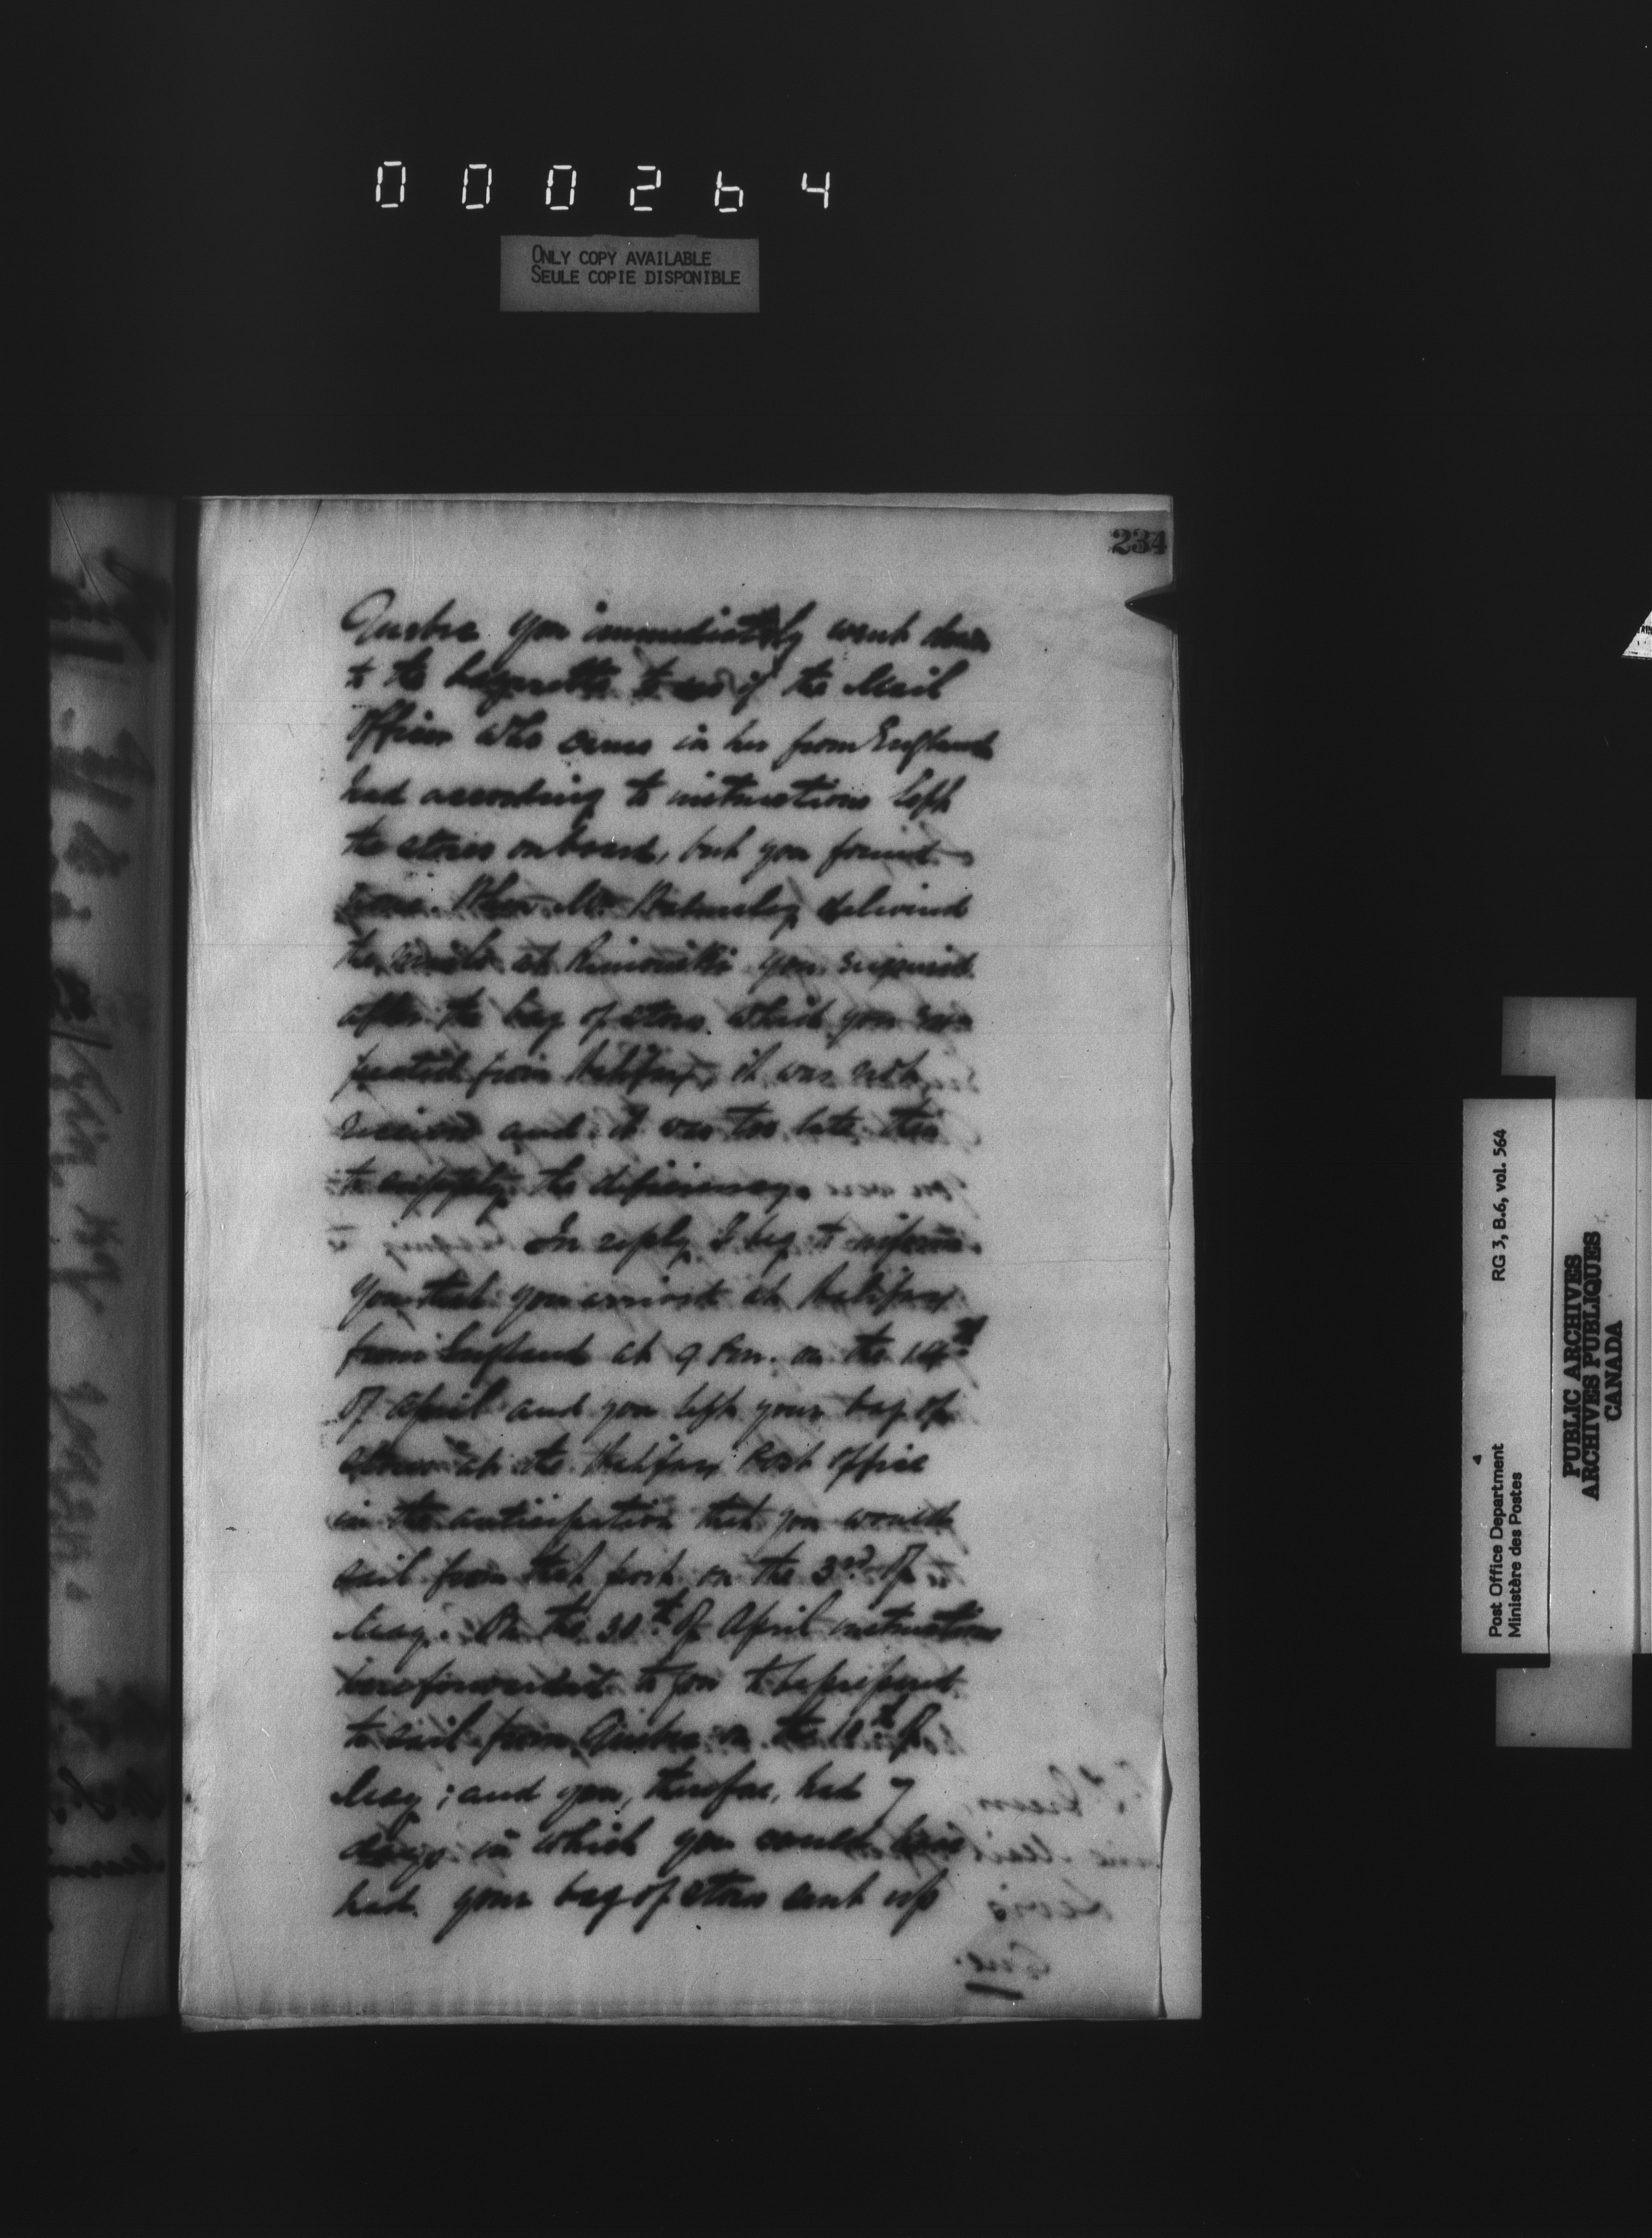 000264
ONLY COPY AVAILABLE
SEULE COPIE DISPONIBLE
234
Quebec you immediately went down
to the to see if the Mail
Officer who came in her from England
had according to instructions left
the stores on board, but you found
none. When Mr. Walmsley delivered
the mails at Rimouski you enquired
after the bag of stores which you
from Halifax, it was not
received and it was too late then
to supply the deficiency.
In reply I beg to inform
you that you arrived at Halifax
from England at 9 P.m. on the 19th
of April and you left your bag of
stores at the Halifax Post Office
in the anticipation that you would
sail from that port on the 3rd of
May. On the 30th of April instructions
were forwarded to you to be prepared
to sail from Quebec on the 10th of
May; and you, therefore, had 7
days in which you could have
had your bag of stores sent up
RG 3, B.6, vol. 564
Post Office Department
Ministère des Postes
PUBLIC ARCHIVES
ARCHIVES PUBLIQUES
CANADA